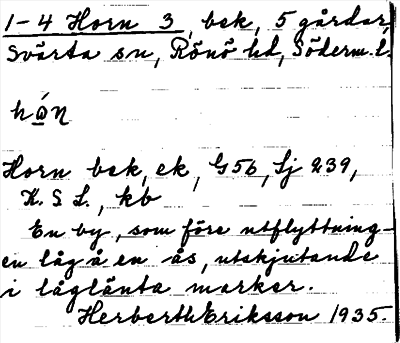 1-4 Horn 3, bek, 5 gårdar,
Svärta sn, Rönö hd, Söderm. l.
hǫ́n
Horn bek, ek, G56, Sj 239,
K. S L., kb
En by, som före utflyttning-
en låg å en ås, utskjutande
i låglänta marker.
Herberth Eriksson 1935.